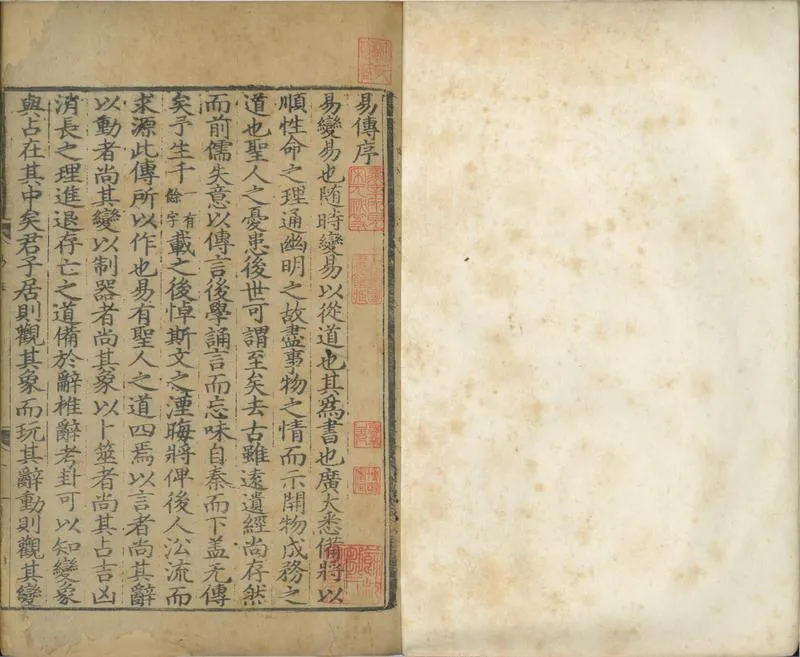 易傳序
易變易也随時變易以從道也其爲書也廣大悉備將以
順性命之理通幽明之故盡事物之情而示開物成務之
道也聖人之憂患後世可謂至矣去古雖逺遺經尚存然
而前儒失意以傳言後學誦言而忘味自秦而下盖无傳
矣予生千一有餘字載之後悼斯文之湮晦將俾後人㳂流而
求源此傳所以作也易有聖人之道四焉以言者尚其辭
以動者尚其變以制器者尚其象以卜筮者尚其占吉凶
消長之理進退存亡之道備於辭推辭考卦可以知變象
與占在其中矣君子居則觀其象而玩其辭動則觀其變